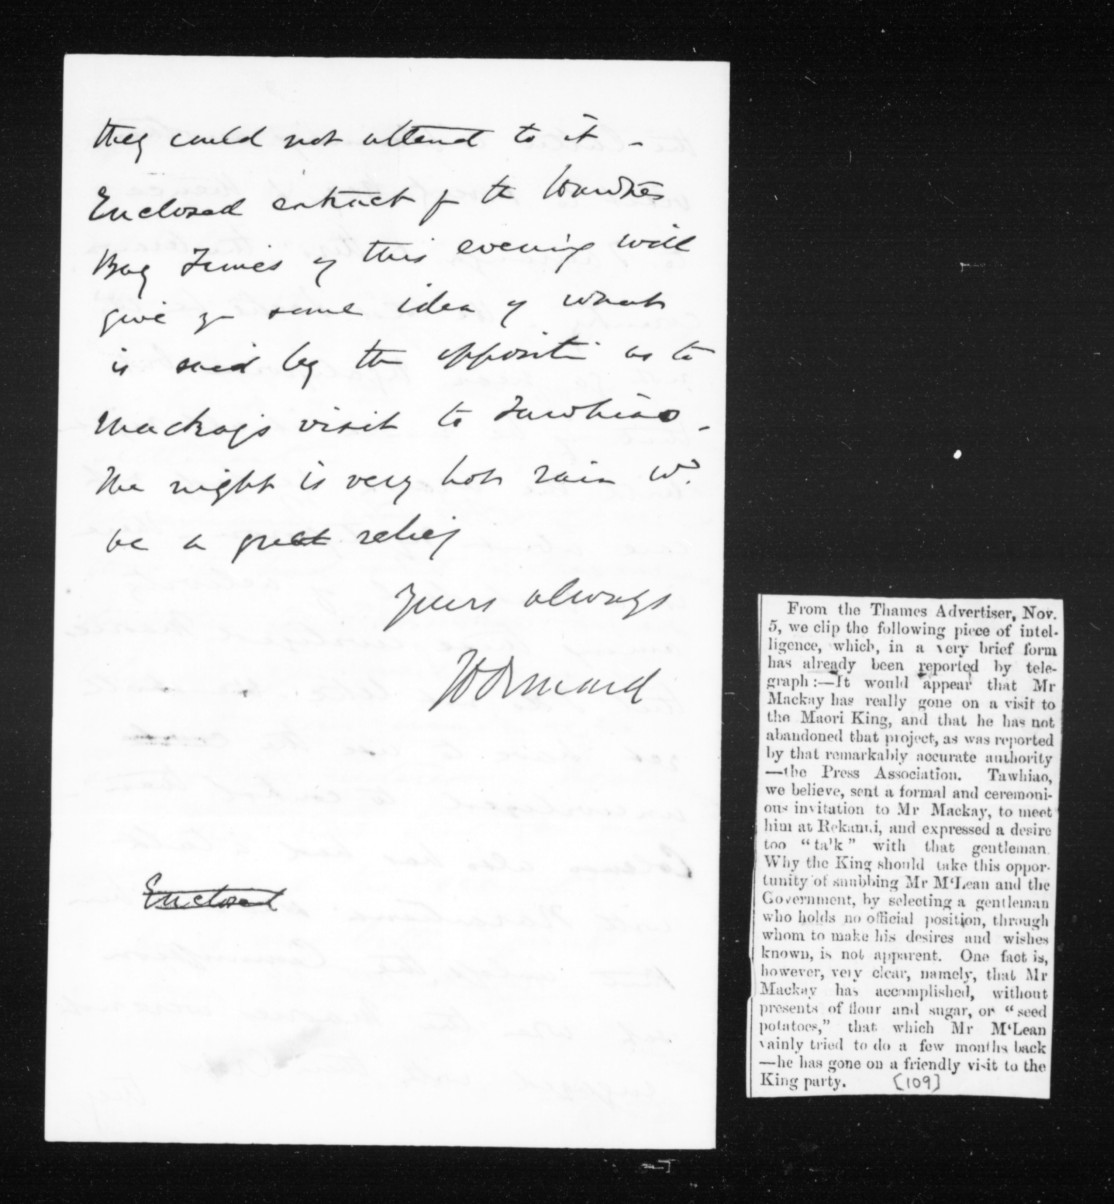 they could not attend to it -
Enclosed extract f the Hawkes
Bay Times of this evening will
give yr some idea of what
is said by the oppositn as to
Mackay's visit to Tawhiao -
The night is very hot rain wd.
be a great relief
Yours always
JD Ormond
Enclosed
From the Thames Advertiser, Nov.
5, we clip the following piece of intel-
ligence, which, in a very brief form
has already been reported by tele-
graph :—It would appear that Mr
Mackay has really gone on a visit to
the Maori King, and that he has not
abandoned that project, as was reported
by that remarkably accurate authority
—the Press Association. Tawhiao,
we believe, sent a formal and ceremoni-
ous invitation to Mr Mackay, to meet
him at Rekanui, and expressed a desire
too "ta'k" with that gentleman.
Why the King should take this oppor-
tunity of snubbing Mr M'Lean and the
Government, by selecting a gentleman
who holds no official position, through
whom to make his desires and wishes
known, is not apparent. One fact is,
however, very clear, namely, that Mr
Mackay has accomplished, without
presents of flour and sugar, or "seed
potatoes," that which Mr M'Lean
vainly tried to do a few months back
—he has gone on a friendly visit to the
King party. [109]